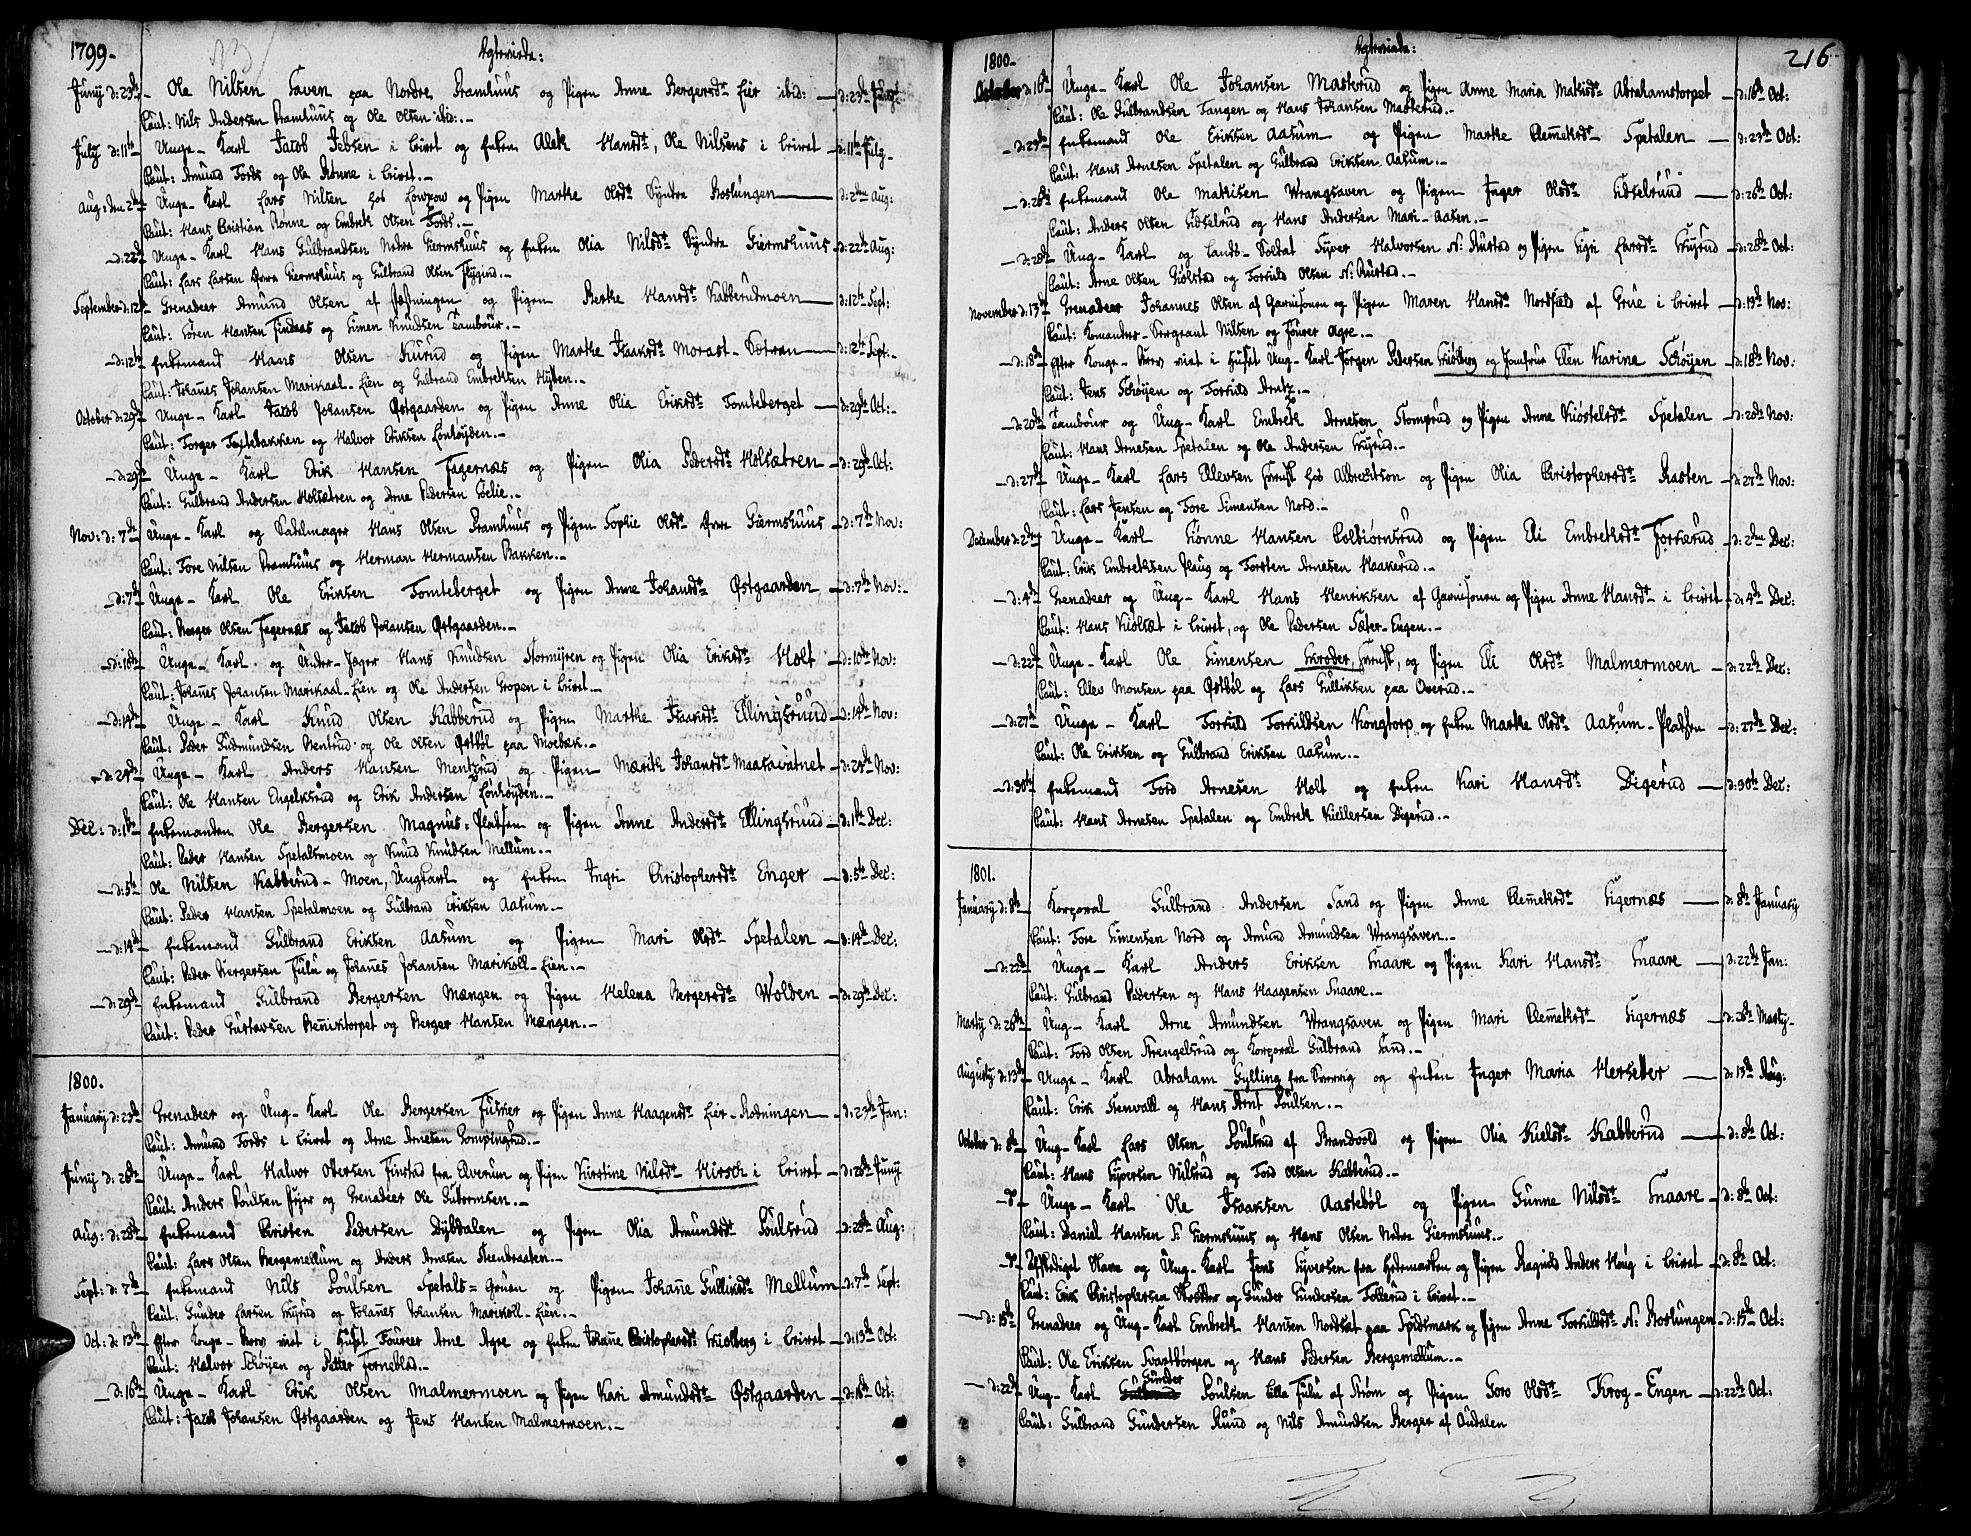 1799-
Egteviede:
Juny d: 23de - Ole Nilsen Saven paa Nordre Bramhuus og Pigen Anne Bergersdr Lier ibid: - d: 23de Juny-
Caut: Nils Andersen Bramhuus og Ole Olsen ibid:-
July d: 11te Unge-Karl Jacob Jebsen i Leiret og Enken Alek Hansdr, Ole Nilsens i Leiret - d: 11te July-
Caut: Amund Fords og Ole Rønne i Leiret.-
Aug: den 2den Unge-Karl Lars Nilsen hos Lowzow og Pigen Marthe Olsdr Syndre Roslungen - d: 2den Aug:
Caut: Hans Christian Rønne og Embret Olsen Fords.-
- d: 22de Unge-Karl Hans Gulbrandsen Nedre Giermshuus og Enken Olia Nilsdr Syndre Giermshuus d: 22de Aug:
Caut: Lars Larsen Øvre Giermshuus og Gulbrand Olsen Flygind.-
September d: 12te Grenadeer Amund Olsen af Fæstningen og Pigen Berthe Hansdr Kabberudmoen - d: 12te Sept:
Caut: Søren Hansen Findaas og Simen Knudsen Tambour.-
- d: 12te Enkemand Hans Olsen Skurud og Pigen Marthe Isaksdr Morast-Sætren - d: 12te Sept:-
Caut: Johañes Johansen Marikaal-Lien og Gulbrand Embretsen Hytten.-
October d: 29de Unge-Karl Jacob Johansen Østgaarden og Pigen Anne Olia Eriksdr Tomteberget - d: 29de Oct:-
Caut: Torger Toftebakken og Halvor Eriksen Lønhøyden.-
- d: 29de Unge-Karl Erik Hansen Fagernæs og Pigen Olia Pedersdr Holsætren - d: 29de Oct:
Caut: Gulbrand Andersen Holsætren og Arne Pedersen Sølie.-
Nov: d: 7de Unge-Karl og Sadelmager Hans Olsen Bramhuus og Pigen Sophie Olsdr Øvre Giermshuus - d: 7de Nov:
Caut: Tore Nilsen Bramhuus og Herman Hermansen Bakken.-
- d: 7de Unge-Karl Ole Eriksen Tomteberget og Pigen Anne Johansdr Østgaarden - d: 7de Nov:-
Caut: Berger Olsen Fagernæs og Jacob Johansen Østgaarden.-
- d: 10de Unge-Karl og Under-Jæger Hans Knudsen Stormyren og Pigen Olia Eriksdr Holt - d: 10de Nov:
Caut: Johañes Johansen Marikaal-Lien og Ole Andersen Gropen i Leiret.-
- d: 14de Unge-Karl Knud Olsen Kabberud og Pigen Marthe Isaksdr Ellingsruud - d: 14de Nov:
Caut: Peder Gudmundsen Bentrud og Ole Olsen Østbøl paa Moebæk.-
- d: 24de Unge-Karl Anders Hansen Mentzrud og Pigen Mærith Johansdr Maasavatnet - d: 24de Nov:
Caut: Ole Hansen Engelksrud og Erik Andersen Lønhøyden.-
Dec: d: 1ste Enkemanden Ole Bergersen Magnus-Pladsen og Pigen Anne Andersdr Ellingsruud - d: 1ste Dec:
Caut: Peder Hansen Spetalsmoen og Knud Knudsen Mellum.-
- d: 5te Ole Nilsen Kabberud-Moen, Ungkarl og Enken Ingri Christophersdr Enger - d: 5te Dec:
Caut: Peder Hansen Spetalmoen og Gulbrand Eriksen Aasum.-
- d: 14de Enkemand Gulbrand Eriksen Aasum og Pigen Mari Olsdr Spetalen - d: 14de Dec:
Caut: Peder Bergersen Fulu og Johañes Johansen Marikoll-Lien.-
- d: 29de Enkemand Gulbrand Bergersen Mængen og Pigen Helena Bergersdr Wolden - d: 29de Dec:
Caut: Peder Gustavsen Beniktorpet og Berger Hansen Mængen.-
1800.
January d: 23de Grenadeer og Ung-Karl Ole Bergersen Fusker og Pigen Anne Haagensdr Lier-Rodningen - d: 23de Jan:
Caut: Amund Fords i Leiret og Arne Arnesen Gompingrud.-
Juny d: 28de Unge-Karl Halvor Ottersen Finstad fra Elverum og Pigen Kirstine Nilsdr Hirsch i Leiret - d: 28de Juny
Caut: Anders Poulsen Øyer og Grenadeer Ole Guttormsen.-
Aug: d: 28de Enkemand Christen Pedersen Dybdalen og Pigen Olia Amundsdr Poulsrud - d: 28de Aug:
Caut: Lars Olsen Bergemellum og Anders Arnesen Steenbraaten.-
Sept: d: 7de Enkemand Nils Poulsen Spetals-Gruen og Pigen Johañe Gulliksdr Mellum - d: 7de Sept:
Caut: Gunder Larsen Skyrud og Johañes Johansen Marikoll-Lien.-
Oct: d: 13de Efter Konge-Brev viet i Huset Foureer Arne Agre og Enken Johañe Christophersdr Skiolberg i Leiret - d: 13de Oct:
Caut: Halvor Schøyen og Petter Torneblad.-
- d: 16de Unge-Karl Erik Olsen Malmermoen og Pigen Kari Amundsdr Østgaarden - d: 16de Oct:
Caut: Jacob Johansen Østgaarden og Jens Hansen Malmermoen.-
1800-
Egteviede:
216
October d: 16de Unge-Karl Ole Johansen Masterud og Pigen Anne Maria Mathisdr Abrahamstorpet - d: 16de Oct:
Caut: Ole Gulbrandsen Tangen og Hans Johansen Masterud.-
- d: 23de Enkemand Ole Eriksen Aasum og Pigen Marthe Clemetsdr Spetalen - d: 23de Oct:
Caut: Hans Arnesen Spetalen og Gulbrand Eriksen Aasum.-
- d: 26de Enkemand Ole Mathisen Wrangsaven og Pigen Inger Olsdr Sidselruud - d: 26de Oct:
Caut: Anders Olsen Sidselrud og Hans Andersen Mari-Aasen.-
- d: 28de Ung-Karl og Lands-Soldat Syver Halvorsen N: Rustad og Pigen Sigri Larsdr Skyrud - d: 28de Oct:
Caut: Arne Olsen Giølstad og Torkild Olsen N: Rustad.-
November d: 13de Grenadeer Johannes Olsen af Garnisonen og Pigen Maren Hansdr Nordsæd af Grue i Leiret - d: 13de Nov:
Caut: Komander-Sergeant Nilsen og Fourer Agre.-
- d: 18de Efter Konge-Brev viet i Huset Ung-Karl Jørgen Pedersen Skiølberg og Jomfrue Elen Karine Schøyen - d: 18de Nov:
Caut: Jens Schøyen og Torkild Arntz.-
- d: 20de Tambour og Ung-Karl Embret Arnesen Stomprud og Pigen Anne Kiøstelsdr Spetalen - d: 20de Nov:
Caut: Hans Arnesen Spetalen og Ole Andersen Skyrud.-
- d: 27de Unge-Karl Lars Ellevsen hos Albrechtson og Pigen Olia Christophersdr Rasten d: 27de Nov:
Caut: Lars Jensen og Tore Simensen Nord.-
December d: 2den Unge-Karl Giønne Hansen Colbiørnsrud og Pigen Eli Embretsdr Torkerud - d: 2den Dec:
Caut: Erik Embretsen Plaug og Torsten Arnesen Haakerud.-
- d: 4de Grenadeer og Ung-Karl Hans Henriksen af Garnisonen og Pigen Anne Hansdr i Leiret - d: 4de Dec:
Caut: Hans Kiølsæt i Leiret, og Ole Pedersen Sæter-Engen.-
- d: 22de Unge-Karl Ole Simensen Skrøder, og Pigen Eli Olsdr Malmermoen - d: 22de Dec:
Caut: Ellev Monsen paa Østbøl og Lars Gulliksen paa Overud.-
- d: 27de Unge-Karl Torkild Torkildsen Kongtorp og Enken Marthe Olsdr Aasum-Pladsen - d: 27de Dec:
Caut: Ole Eriksen og Gulbrand Eriksen Aasum.-
- d: 30te Enkemand Tord Arnesen Holt og Enken Kari Hansdr Digerud - d: 30te Dec:
Caut: Hans Arnesen Spetalen og Embret Kiellersen Digerud.-
1801.
January d: 8de Korporal Gulbrand Andersen Sand og Pigen Anne Clemetsdr Sigernæs - d: 8de January
Caut: Tore Simensen Nord og Amund Amundsen Wrangsaven.-
- d: 22de Unge-Karl Anders Eriksen Snaare og Pigen Kari Hansdr Snaare - d: 22de Jan:
Caut: Gulbrand Pedersen og Hans Haagensen Snaare.-
Marty d: 26de Ung-Karl Arne Amundsen Wrangsaven og Pigen Mari Clemetsdr Sigernæs - d: 26de Marty-
Caut: Tord Olsen Strengelsrud og Korporal Gulbrand Sand.-
Augusty d: 13de Unge-Karl Abraham Gylling fra Sverrig og Enken Inger Maria Herseter - d: 13de Aug:
Caut: Erik Stenvall og Hans Arnt Poulsen.-
October d: 8de Ung-Karl Lars Olsen Poulsrud af Brandvold og Pigen Olia Kielsdr Kabberud - d: 8de Oct:
Caut: Hans Syversen Nilsrud og Tord Olsen Kabberud.-
- d° - Unge-Karl Ole Isaksen Aastebøl og Pigen Gunne Nilsdr Snaare - d: 8de Oct:
Caut: Daniel Hansen S: Giermshuus og Hans Olsen Nedre Giermshuus.-
- d° - Afskediget Slave og Ung-Karl Jens Syversen fra Hedemarken og Pigen Ragnild Anders Haug i Leiret - d: 8de Oct:
Caut: Erik Christophersen og Gunder Gundersen Tollerud i Leiret.-
- d: 15de Grenadeer og Ung-Karl Embret Hansen Nordset paa Spidsmark og Pigen Anne Torkildsdr N: Roslungen - d: 15de Oct:
Caut: Ole Eriksen Svartbørgen og Hans Pedersen Bergemellum.-
- d: 22de Ung-Karl Gulbrand Gunder Poulsen Lille Fulu af Strøm og Pigen Goro Olsdr Krog-Engen - d: 22de Oct:
Caut: Gulbrand Gundersen Ruud og Nils Amundsen Berger af Oudalen